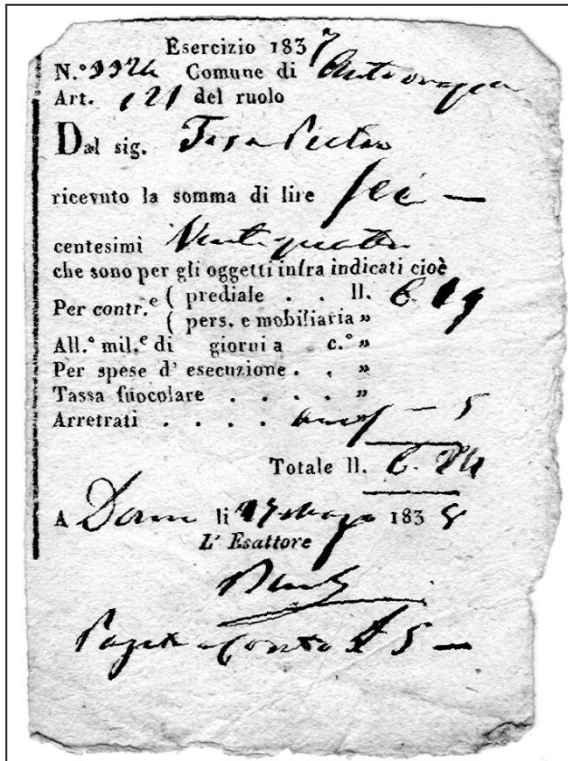 Esercizio 1837
N.º 3324 Comune di Antronapiana
Art. 121 del ruolo
Dal sig.
ricevuto la somma di lire sei —
centesimi Ventiquattro
che sono per gli oggetti infra indicati cioè
Per contr.e ( prediale . . ll. 6. 19
( pers. e mobiliaria »
All.º mil.e di giorni a c.º »
Per spese d' esecuzione . . »
Tassa fuocolare . . . . »
Arretrati . . . . — 5
Totale ll. 6. 24
A Domo li 1838
L' Esattore
Pagato a Conto 5 —